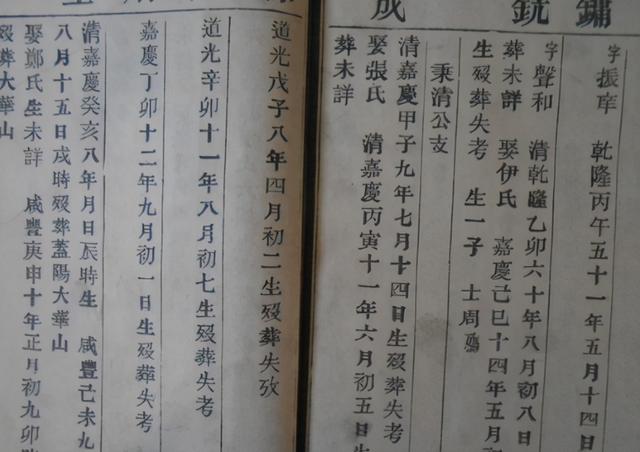 鏽
銑
成
字 振宰 乾隆丙午五十一年五月十四日
字 聲和 清乾隆乙卯六十年八月初八日
葬未詳 娶伊氏 嘉慶己巳十四年五月初
生殁葬失考 生一子 士周
秉清公支
清嘉慶甲子九年七月十四日生殁葬失考
娶張氏 清嘉慶丙寅十一年六月初五日生
葬未詳
道光戊子八年四月初二生殁葬失攷
道光辛卯十一年八月初七生殁葬失考
嘉慶丁卯十二年九月初一日生殁葬失考
清嘉慶癸亥八年月日辰時生 咸豐己未九
八月十五日戌時殁葬蓋陽大華山
娶鄭氏生未詳 咸豐庚申十年正月初九卯時
殁葬大華山